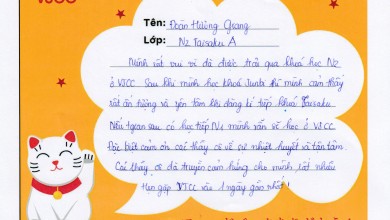 VJCC
Tên: Đoàn Hương Giang
Lớp: N2 Taisaku A
Mình rất vui vì đã được trải qua khoá học N2
ở VJCC. Sau khi mình học khoá Junbi thì mình cảm thấy
rất ấn tượng và yên tâm khi đăng kí tiếp khoá Taisaku
Nếu tgian sau có học tiếp N1 mình vẫn về học ở VJCC.
Đặc biệt cảm ơn các thầy cô về sự nhiệt huyết và tận tâm.
Các thầy cô đã truyền cảm hứng cho mình rất nhiều
Hẹn gặp VJCC vào 1 ngày gần nhất!